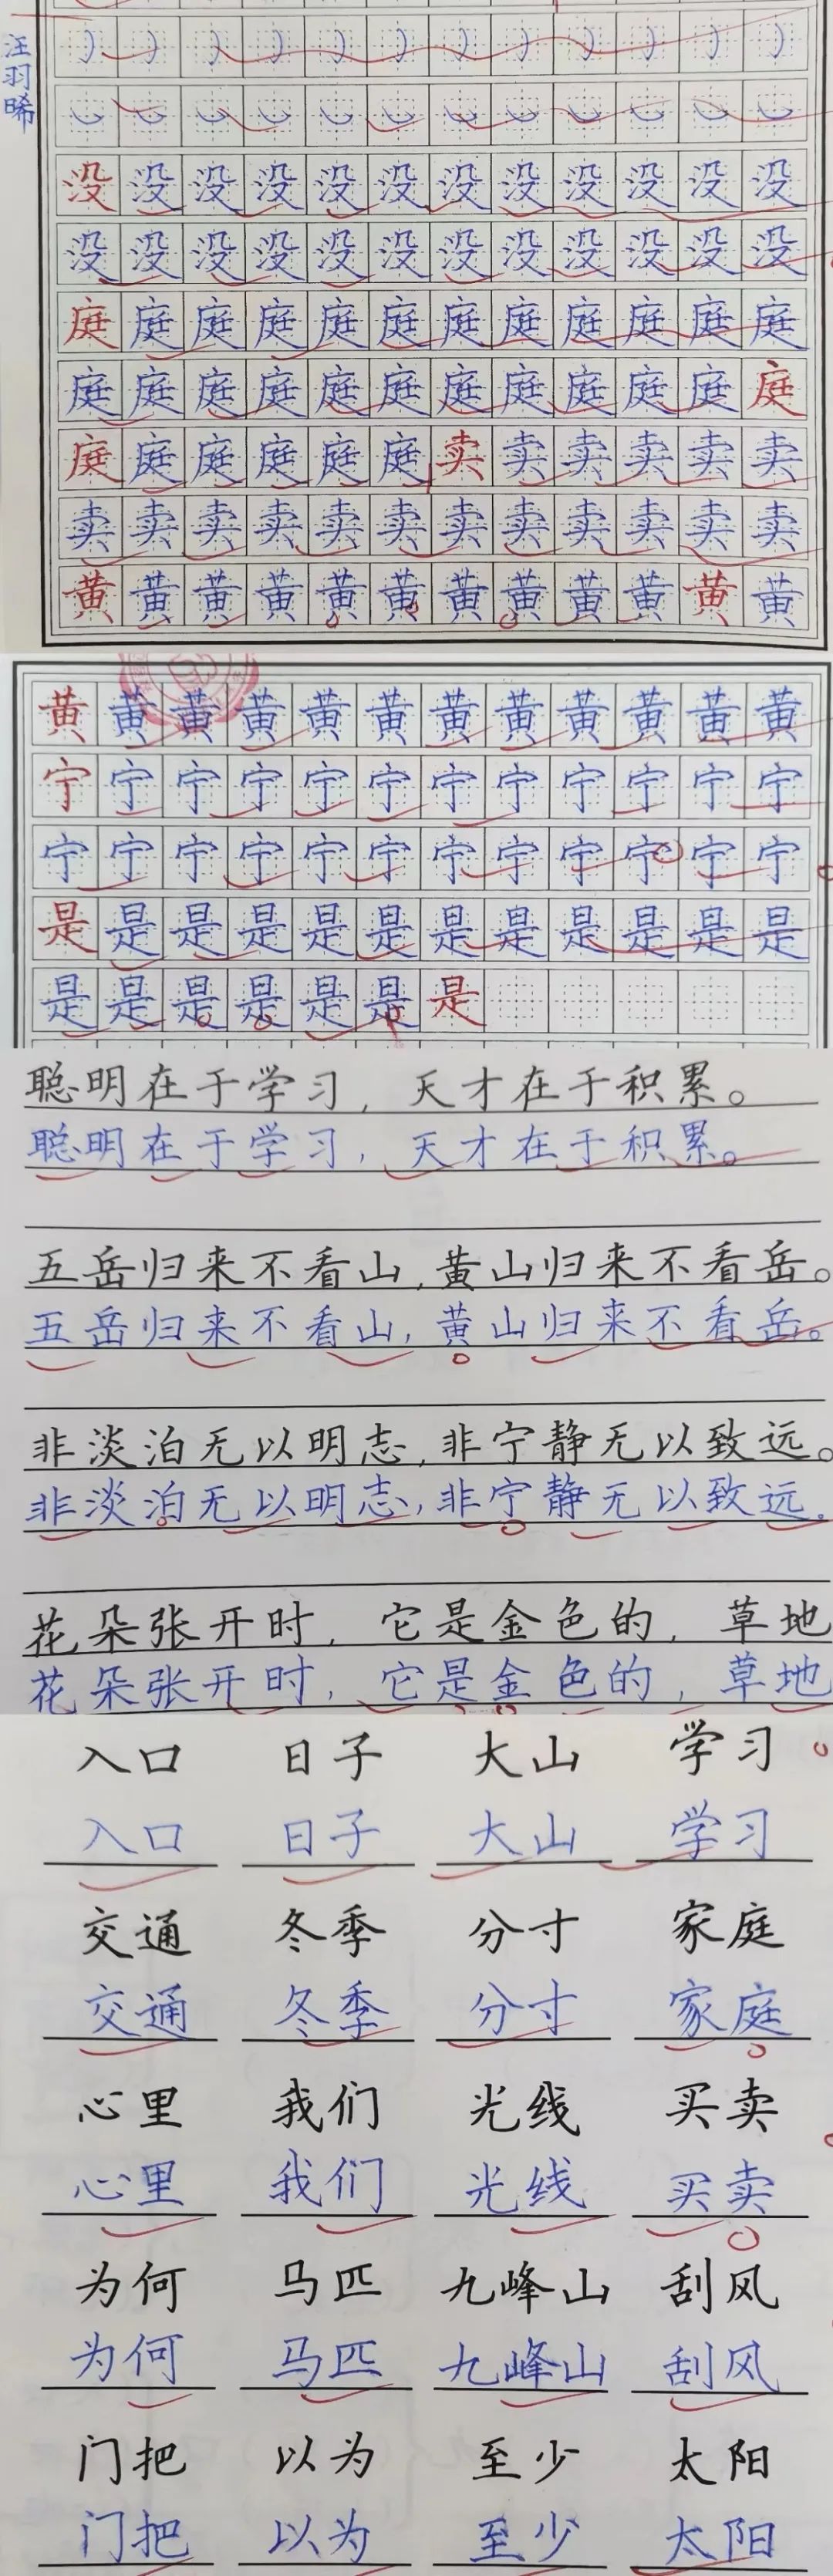 汪羽晞
没没没没没没没没没没没没
没没没没没没没没没没没没
庭庭庭庭庭庭庭庭庭庭庭庭
庭庭庭庭庭庭庭庭庭庭庭庭
庭庭庭庭庭庭卖卖卖卖卖卖
卖卖卖卖卖卖卖卖卖卖卖卖
黄黄黄黄黄黄黄黄黄黄黄黄
黄黄黄黄黄黄黄黄黄黄黄黄
宁宁宁宁宁宁宁宁宁宁宁宁
宁宁宁宁宁宁宁宁宁宁宁宁
是是是是是是是是是是是是
是是是是是是是
聪明在于学习，天才在于积累。
聪明在于学习，天才在于积累。
五岳归来不看山，黄山归来不看岳。
五岳归来不看山，黄山归来不看岳。
非淡泊无以明志，非宁静无以致远。
非淡泊无以明志，非宁静无以致远。
花朵张开时，它是金色的，草地
花朵张开时，它是金色的，草地
入口 日子 大山 学习
入口 日子 大山 学习
交通 冬季 分寸 家庭
交通 冬季 分寸 家庭
心里 我们 光线 买卖
心里 我们 光线 买卖
为何 马匹 九峰山 刮风
为何 马匹 九峰山 刮风
门把 以为 至少 太阳
门把 以为 至少 太阳